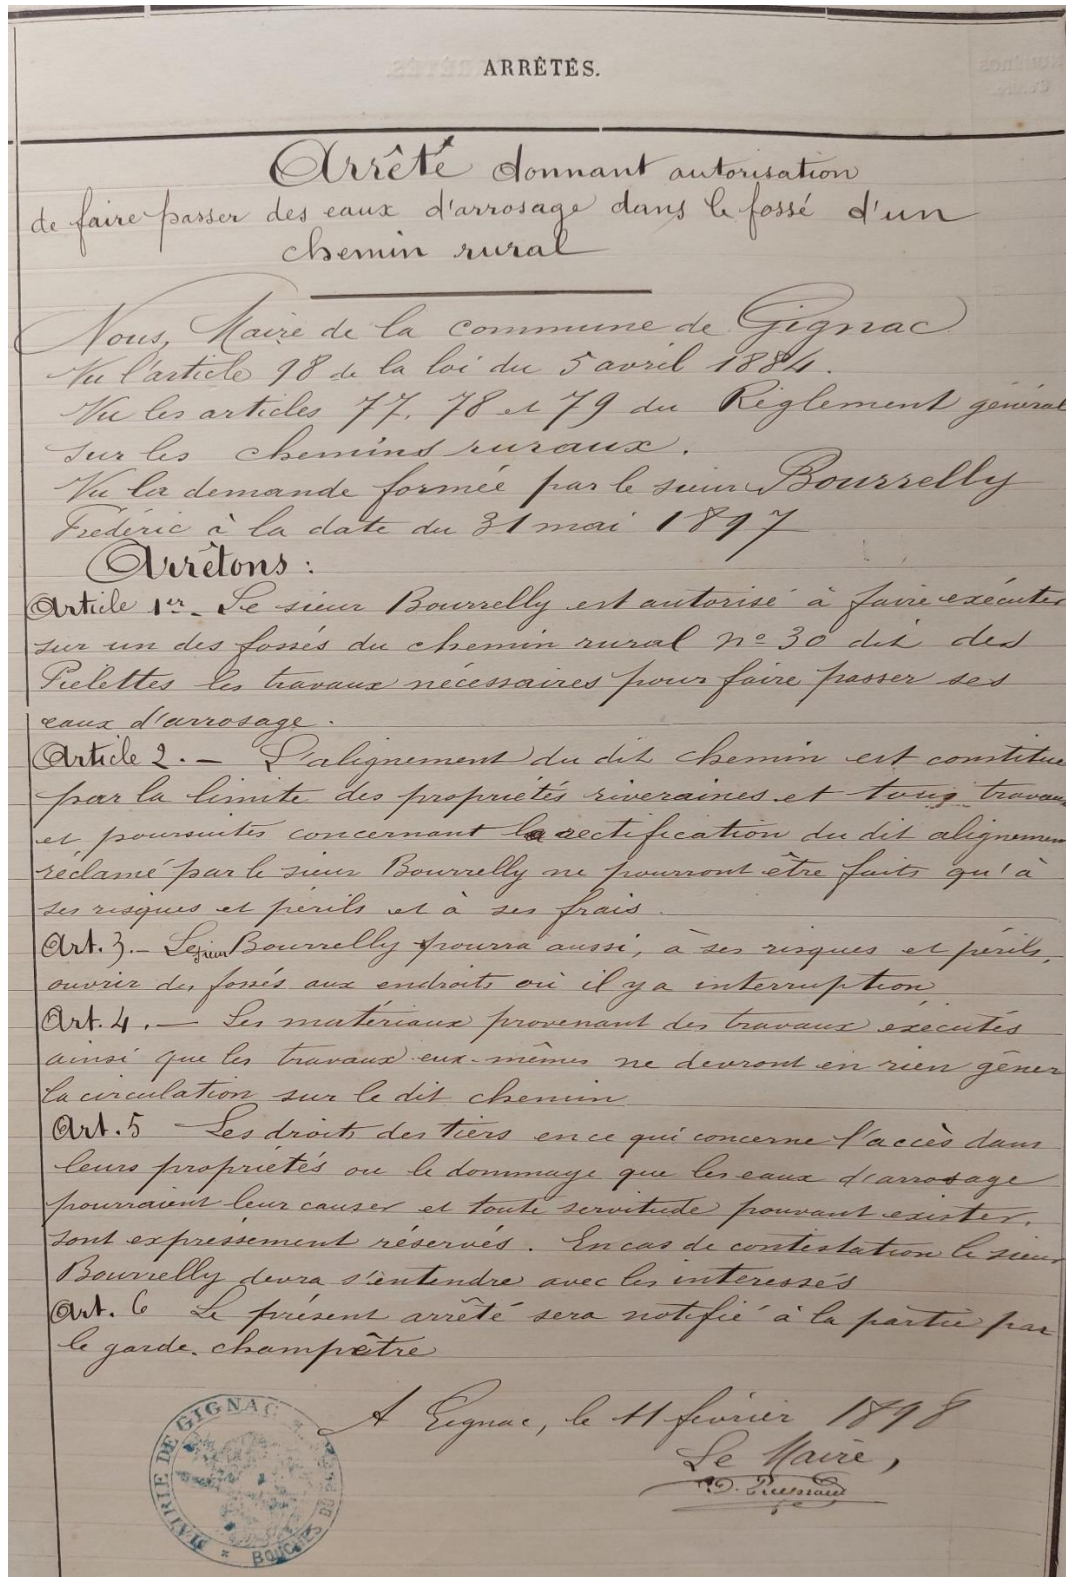 ARRÊTÉS.
Arrêté donnant autorisation
de faire passer des eaux d'arrosage dans le fossé d'un
chemin rural
Nous, Maire de la commune de Gignac
Vu l'article 98 de la loi du 5 avril 1884.
Vu les articles 77, 78 et 79 du Règlement général
sur les chemins ruraux.
Vu la demande formée par le sieur Bourrelly
Frédéric à la date du 31 mai 1897
Arrêtons :
Article 1er - Le sieur Bourrelly est autorisé à faire exécuter
sur un des fossés du chemin rural no 30 dit des
Pielettes les travaux nécessaires pour faire passer ses
eaux d'arrosage.
Article 2. - L'alignement du dit chemin est constitué
par la limite des propriétés riveraines et tous travaux
et poursuites concernant la rectification du dit alignemen
réclamé par le sieur Bourrelly ne pourront être faits qu'à
ses risques et périls et à ses frais.
Art. 3. - Le sieur Bourrelly pourra aussi, à ses risques et périls,
ouvrir des fossés aux endroits où il y a interruption
Art. 4. - Les matériaux provenant des travaux exécutés
ainsi que les travaux eux-mêmes ne devront en rien gêner
la circulation sur le dit chemin
Art. 5 Les droits des tiers en ce qui concerne l'accès dans
leurs propriétés ou le dommage que les eaux d'arrosage
pourraient leur causer et toute servitude pouvant exister,
sont expressément réservés. En cas de contestation le sieur
Bourrelly devra s'entendre avec les intéressés
Art. 6 Le présent arrêté sera notifié à la partie par
le garde-champêtre
A Gignac, le 11 février 1898
Le Maire,
MAIRIE DE GIGNAC
BOUCHES DU